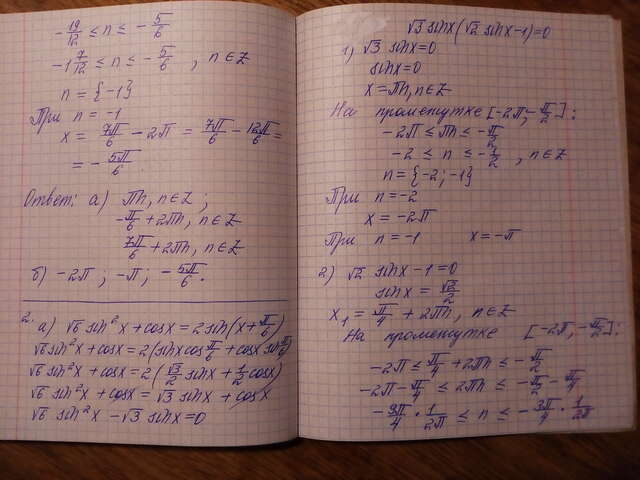 -19/12 ≤ n ≤ -5/6
-1 7/12 ≤ n ≤ -5/6 , n ∈ Z
n = {-1}
При n = -1
x = 7π/6 - 2π = 7π/6 - 12π/6 =
= -5π/6
Ответ: а) πn, n∈Z ;
-π/6 + 2πn, n∈Z
7π/6 + 2πn, n∈Z
б) -2π ; -π ; -5π/6.
2. а) √6 sin²x + cosx = 2sin(x + π/6)
√6 sin²x + cosx = 2(sinx cos π/6 + cosx sin π/6)
√6 sin²x + cosx = 2(√3/2 sinx + 1/2 cosx)
√6 sin²x + cosx = √3 sinx + cosx
√6 sin²x - √3 sinx = 0
√3 sinx(√2 sinx - 1) = 0
1) √3 sinx = 0
sinx = 0
x = πn, n∈Z
На промежутке [-2π; -π/2]:
-2π ≤ πn ≤ -π/2
-2 ≤ n ≤ -1/2 , n∈Z
n = {-2; -1}
При n = -2
x = -2π
При n = -1 x = -π
2) √2 sinx - 1 = 0
sinx = √2/2
x₁ = π/4 + 2πn, n∈Z
На промежутке [-2π, -π/2]:
-2π ≤ π/4 + 2πn ≤ -π/2
-2π - π/4 ≤ 2πn ≤ -π/2 - π/4
-9π/4 · 1/2π ≤ n ≤ -3π/4 · 1/2π